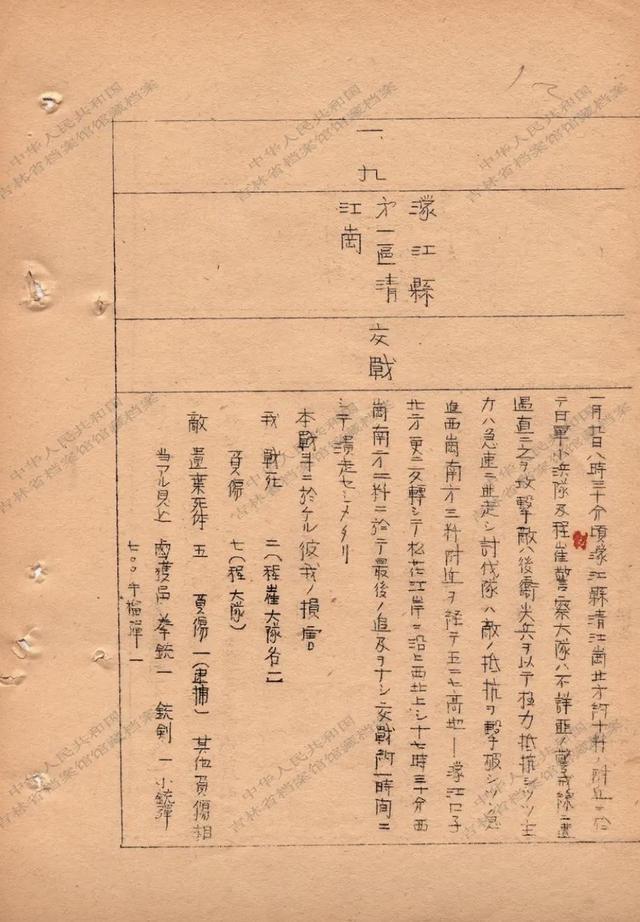 一、九
濛江縣
才一區清
江崗
交戰
一月九日八時三十分頃濛江縣清江崗北方約十粁ノ附近ニ於
テ日軍小浜隊及程崔警察大隊ハ不詳匪ノ警戒線ニ遭
遇直ニ之ヲ攻撃敵ハ後衛尖兵ヲ以テ極力抵抗シツツ主
力ハ急速ニ逃走シ討伐隊ハ敵ノ抵抗ヲ撃破シツツ急
進西崗南方三粁附近ヲ経テ五二七高地ー濛江口子
北方更ニ反転シテ松花江岸ニ沿ヒ西北上シ十七時三十分西
崗南方二粁ニ於テ最後ノ追及ヲナシ交戰約一時間ニ
シテ潰走セシメタリ
本戰斗ニ於ケル彼我ノ損害
我 戰死 二(程崔大隊各一)
負傷 七(程大隊)
敵 遺棄死体 五 負傷一(逮捕) 其他負傷相
当アル見込 鹵獲品 拳銃一 銃剣 一 小銃彈
七〇〇 手榴彈 一
中华人民共和国
吉林省档案馆馆藏档案